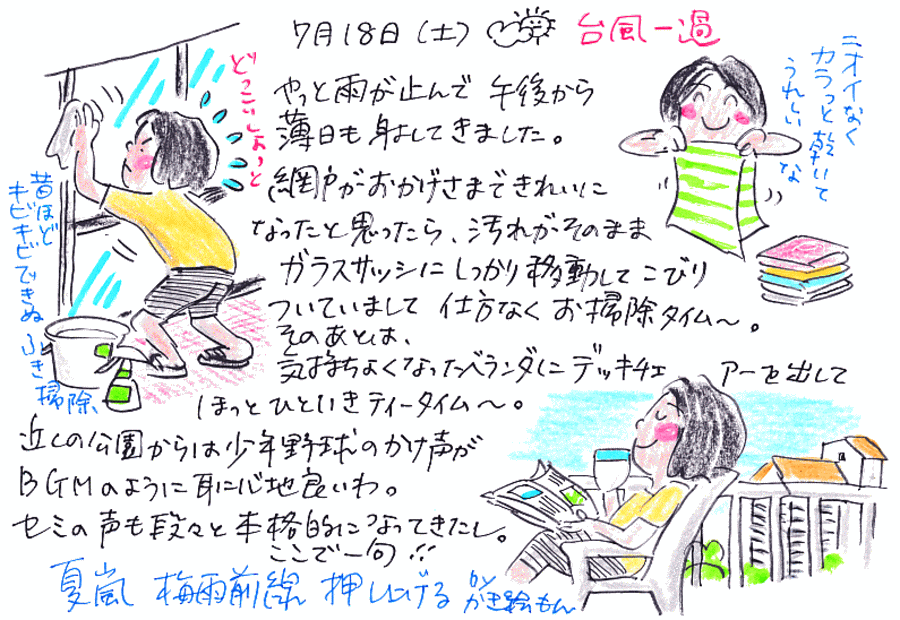 7月18日(土)
台風一過
やっと雨が止んで 午後から
薄日も射してきました。
網戸がおかげさまできれいに
なったと思ったら、汚れがそのまま
ガラスサッシにしっかり移動してこびり
ついていまして 仕方なく お掃除タイム〜。
そのあとは、
気持ちよくなったベランダにデッキチェアーを出して
ほっとひといきティータイム〜。
近くの公園からは少年野球のかけ声が
BGMのように耳に心地良いわ。
セミの声も段々と本格的になってきたし。
ここで一句!!
夏嵐 梅雨前線 押し上げる
どっこいしょっと
昔ほど
キビキビできぬ ふき
掃除、
ニオイなく
カラっと乾いて
うれしいな